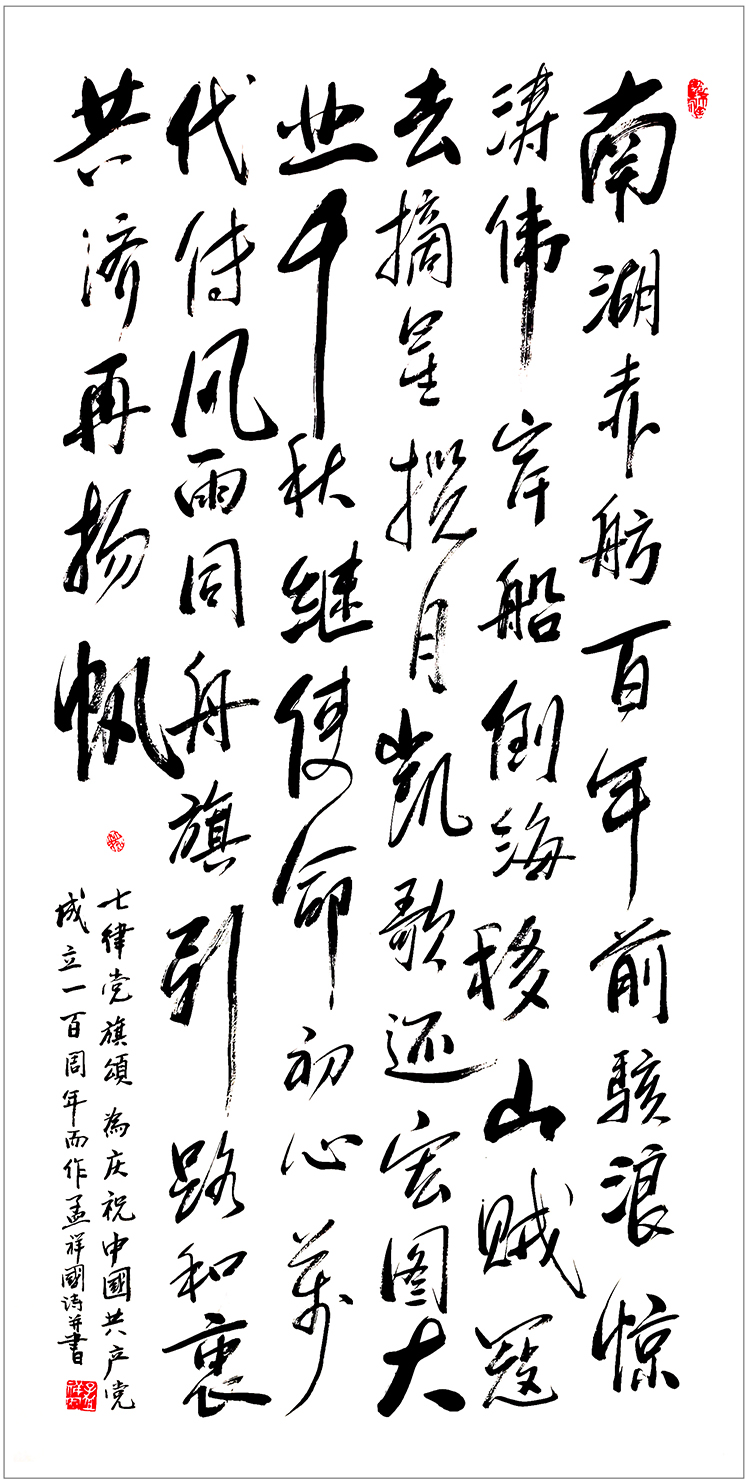 南湖赤舫百年前骇浪惊
涛伟岸船倒海移山贼寇
去摘星揽月凯歌还宏图大
业千秋继使命初心萬
代传风雨同舟旗引路和衷
共济再扬帆
七律党旗頌 為庆祝中國共产党
成立一百周年而作孟祥國诗并書